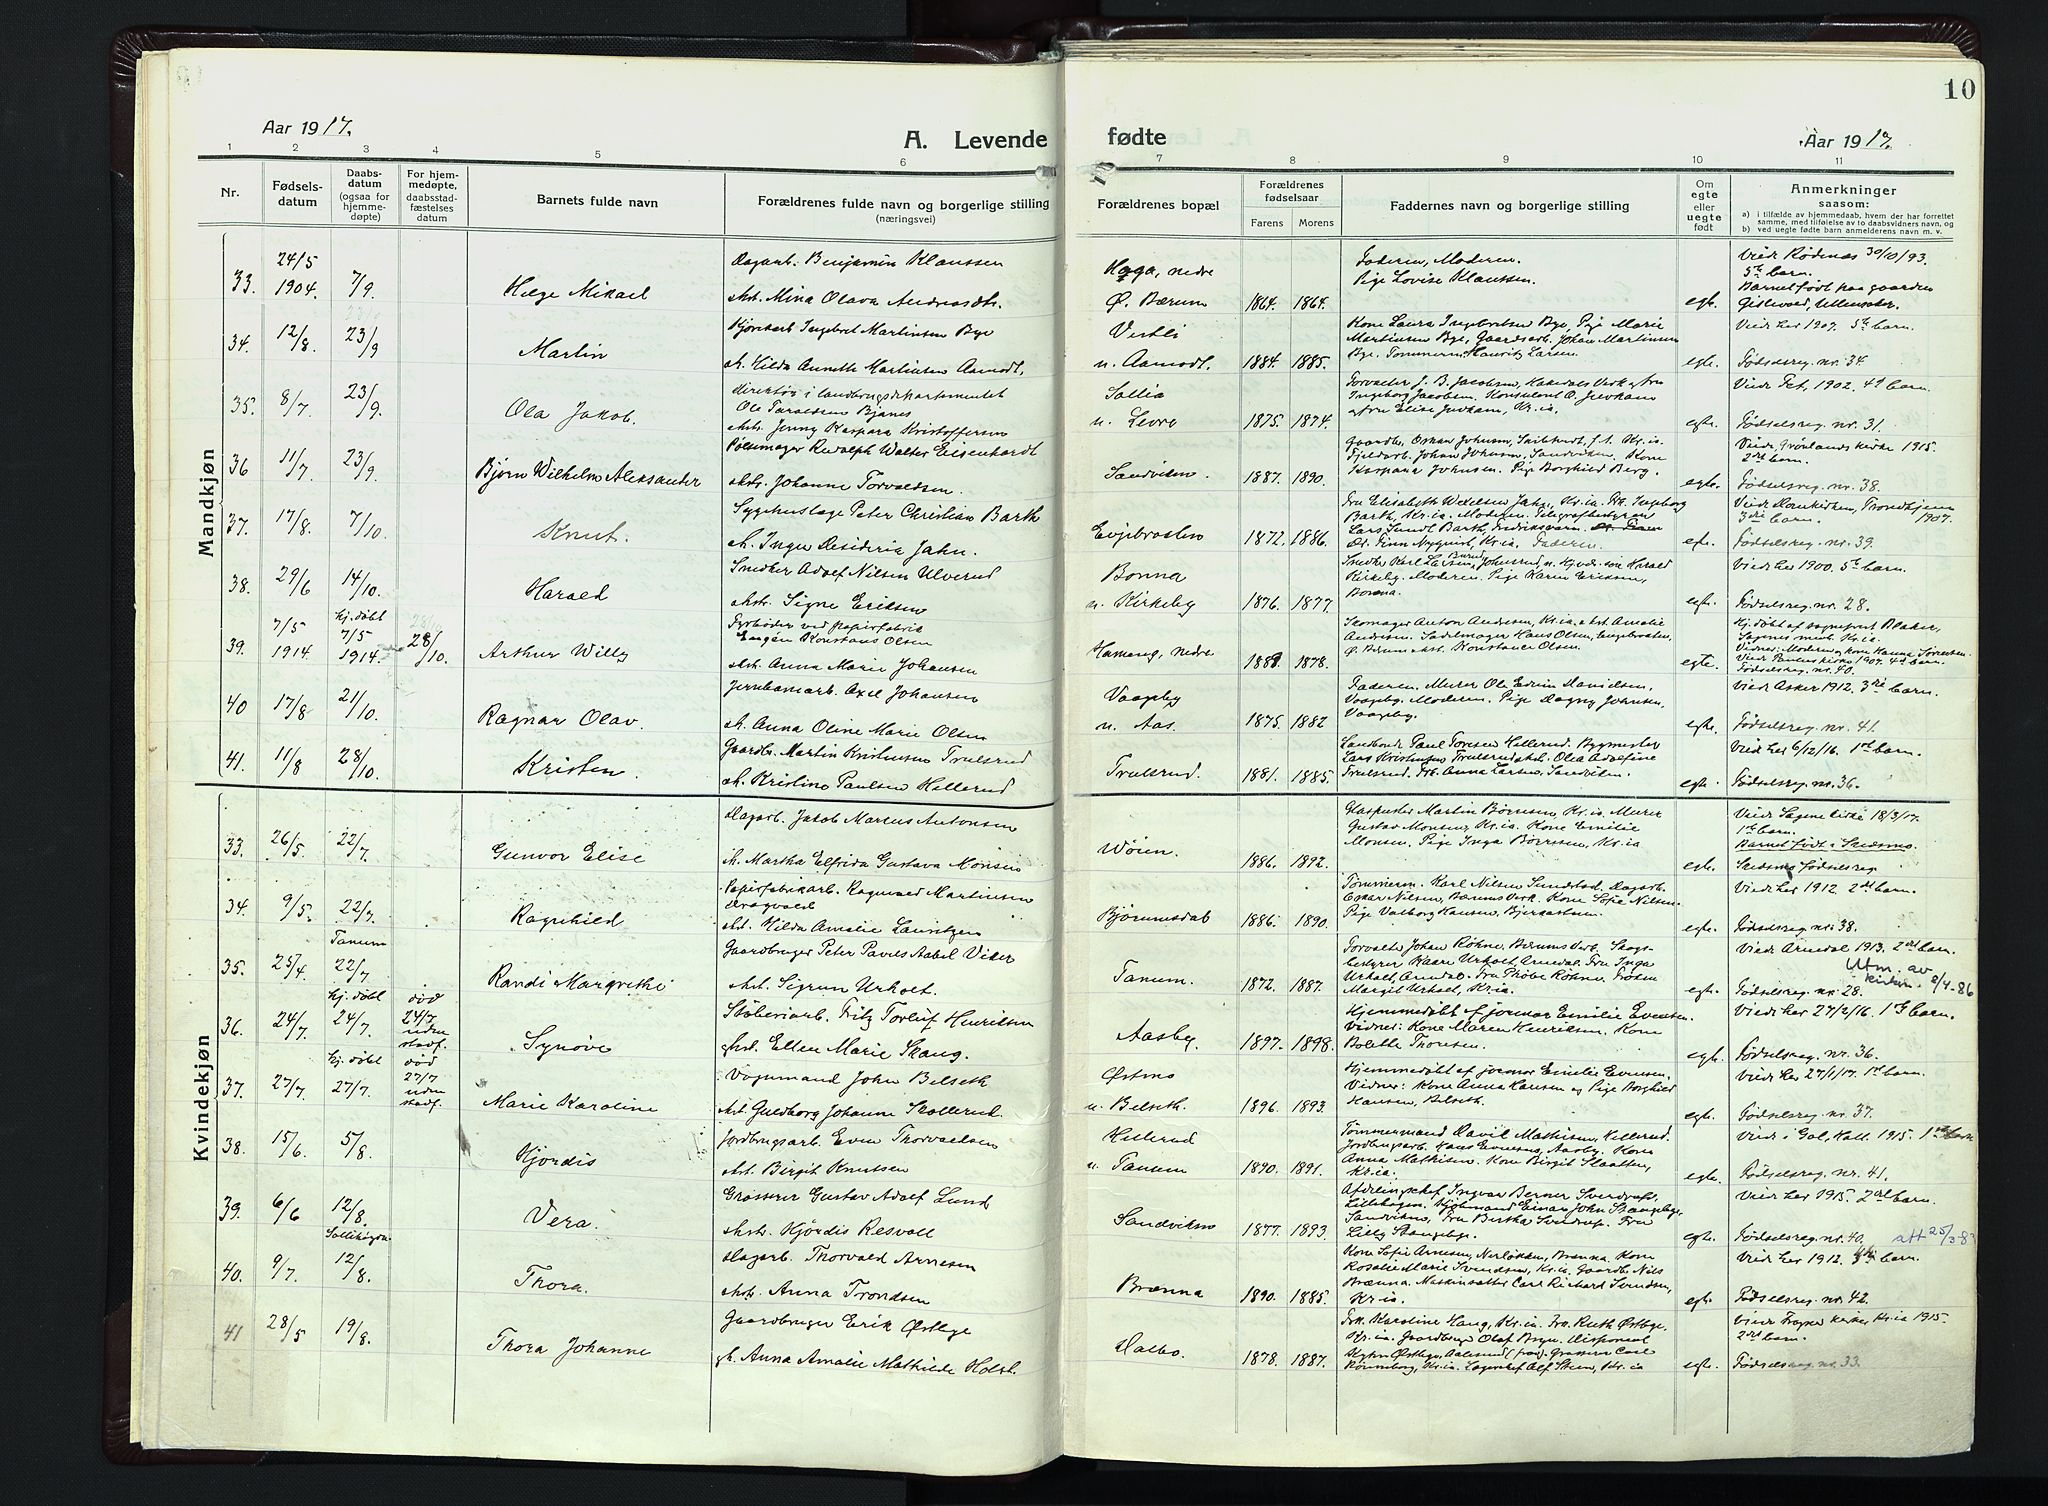 10
Aar 1917.
A. Levende
fødte
Aar 1917.
1 2 3 4 5 6 7 8 9 10 11
Nr.
Fødsels-
datum
Daabs-
datum
(ogsaa for
hjemme-
døpte)
For hjem-
medøpte,
daabsstad-
fæstelses
datum
Barnets fulde navn
Forældrenes fulde navn og borgerlige stilling
(næringsvei)
Forældrenes bopæl
Forældrenes
fødselsaar
Farens Morens
Faddernes navn og borgerlige stilling
Om
egte
eller
uegte
født
Anmerkninger
saasom:
a) i tilfælde av hjemmedaab, hvem der har forrettet
samme, med tilføielse av to daabsvidners navn, og
b) ved uegte fødte barn anmelderens navn m. v.
Mandkjøn
24/5 Dagarb. Benjamin Klaussen Haga, nedre Faderen, Moderen. Viede Rødenes 30/10/93.
Pige Lovise Klaussen. 5te barn.
33. 1904. 7/9. Helge Mikael Hst. Mina Olava Ø. Bærum 1864. 1864. egte. Barnet født paa gaarden
Ullensaker.
34. 12/8. 23/9 Martin Kjørekarl Ingebret Martinsen Bye Vestli Kone Laura Ingebretsen Bye, Pige Marie Viede her 1907. 5te barn.
Martinsen Bye, Gaardsarb. Johan Martinsen
h. Hilda Annette Martinsen Aamodt. u. Aamodt. 1884. 1885. Bye. Tømmerm. Hauritz Larsen. egte. Fødselsreg. nr. 34.
35. 8/7 23/9. Ola Jakob. Direktør i landbrugsdepartementet Sollia Forvalter J. B. Jacobsen, Hakedals Verk o fru Viede Fet, 1902. 4de barn.
Ola Taraldsen Bjanes Ingeborg Jacobsen.
Hst. Jenny Kaspara Kristoffersen u. Levre 1875. 1874. Kr.ia. egte. Fødselsreg. nr. 31.
36 11/7 23/9. Bjørn Wilhelm Aleksander Pølsemager Rudolph Walter Eisenhardt Sandviken. Gaardbr. Oskar Johnsen, Kr.ia. Viede Grønlands kirke 1915.
Fjeldarb. Johan Johnsen, Sandviken. Kone 2det barn.
Hst. Johanne Torvaldsen. 1887. 1890. Kaspara Johnsen. Pige Borghild Berg. egte. Fødselsreg. nr. 38.
37. 17/8. 7/10. Knut. Sygehuslæge Peter Christian Barth Evjebraaten Fru Elisabeth Wexelsen Jahn, Kr.ia. Frk. Ingeborg Viede Domkirken, Trondhjem
Barth, Kr.ia. Moderen. 3die barn. 1907.
Lars Sundt Barth, Fredriksvern.
h. Inga Desideria Jahn. 1872. 1886. Dr. Finn Nyquist, Kr.ia. Faderen. egte. Fødselsreg. nr. 39.
38. 29/6 14/10. Harald Snedker Adolf Nilsen Ulverud Bonna Snedker Karl Larsen, Harald Viede her 1900. 5te barn.
Kirkeby. Moderen. Pige Karen Eriksen,
Hst. Signe Eriksen u. Kirkeby 1876. 1877 Bonna. egte. Fødselsreg. nr. 28.
7/5 hj.døbt Fyrbøder ved papirfabrik Skomager Anton Andersen, Kr.ia. Hst. Amalie Hj. døbt af sogneprest Blaker,
39. 1914 7/5 1914. 28/10. Arthur Willy Eugen Konstans Olsen Hamang, nedre Andersen. Sadelmager Hans Olsen, Sagenes menb. Kr.ia.
Hst. Anna Marie Johansen 1888. 1878. Ø. Bærum Hst. Konstance Olsen. egte. Vidner: Moderen og kone Hanna
Viede Paulus kirke 1907. 4de barn.
Fødselsreg. nr. 40.
40 17/8 21/10. Ragnar Olav. Jernbanearb. Axel Johansen Vaageby Faderen. Murer Ole Edvin Davidsen, Viede Asker 1912. 3die barn.
Vaageby. Moderen. Pige Dagny Johnsen,
h. Anna Oline Marie Olsen u. Aas. 1875. 1882 Vaageby. egte. Fødselsreg. nr. 41.
41. 11/8 28/10. Kristen. Gaardbr. Martin Kristensen Trulsrud Trulsrud. Landbonde Paul Hellerud. Bygmester Viede her 6/12/16. 1ste barn.
Lars Kristensen Trulsrud Hst. Olea Adolfine
h. Kristine Paulsen Hellerud 1881. 1885. Trulsrud. Frk. Anna Larsen, Sandviken. egte. Fødselsreg. nr. 36.
Kvindekjøn
33. 26/5 22/7. Gunvor Elise Dagarb. Jakob Marius Antonsen Wøien. Glaspuster Martin Børresen, Kr.ia. Murer Viede Sagene kirke 18/3/17.
Gustav Monsen, Kr.ia. Kone Emilie 1ste barn.
Monsen. Pige Inga Børresen, Kr.ia Barnet født i Skedsmo.
h. Martha Elfrida Gustava Monsen 1886. 1892. egte. Skedsmo fødselsreg
34. 9/5. 22/7. Ragnhild Papirfabrikarb. Ragnvald Martinsen Bjørumsdal Tømmerm. Karl Nilsen Sundstad. Dagarb. Viede her 1912 2det barn.
Dragvold Oskar Nilsen, Bærums Verk. Kone Sofie Nilsen.
Hst. Hilda Amalie Lauritzen 1886. 1890. Pige Valborg Hansen, egte. Fødselsreg. nr. 38.
Tanum
35. 25/4. 22/7 Randi Margrethe Gaardbruger Peter Pavels Aabel Viker Tanum. Forvalter Johan Røhne, Bærums Verk. Skog- Viede Arendal 1913. 2det barn.
bestyrer Kaare Urholt, Arendal. Fru Inga Utm. av
Urholt, Arendal. Fru Phøbe Røhne, Frøken kirken. 2/4-86
Hst. Sigrun Urholt. 1872. 1887. Margit Urholt, Kr.ia. egte. Fødselsreg. nr. 28.
hj. døbt død
36. 24/7. 24/7. 24/7 uden stadf. Synøve Støberiarb. Fritz Torleif Henriksen Aasby. Hjemmedøbt af jormor Emilie Evensen. Viede her 27/2/16. 1ste barn.
Vidner: Kone Maren Henriksen. Kone
Hst. Ellen Marie Skaug. 1897. 1898. Bolette Thoresen. egte. Fødselsreg. nr. 36.
hj. døbt død
37. 27/7. 27/7. 27/7 uden stadf. Marie Karoline Vognmand John Belseth Østmo Hjemmedøbt af jormor Emilie Evensen. Viede her 27/1/17. 1ste barn.
Vidner: Kone Anna Hansen og Pige Borghild
Hst. Guldborg Johanne Skollerud. u. Belseth. 1896. 1893. Hansen, Belseth. egte. Fødselsreg. nr. 37.
38. 15/6. 5/8. Hjørdis Jordbrugsarb. Even Thorvaldsen Hellerud Tømmermand David Mathisen, Hellerud. Viede i Gol, Hall. 1915. 1ste barn
Jordbrugsarb. Hans Evensen, Aasby. Kone
Hst. Birgit Knutsen u. Tanum 1890. 1891. Anna Mathisen. Kone Birgit Slaatten, Kr.ia. egte. Fødselsreg. nr. 41.
39. 6/6 12/8. Vera. Grosserer Gustav Adolf Lund Sandviken Afdelingschef Ingvar Berner Sverdrup, Viede her 1915. 2det barn.
Lillehagen. Kjøbmand Einar John Stangebye,
Sandviken, Fru Bertha Sverdrup. Fru
Hst. Hjørdis Resvoll 1877. 1893. Lilly Stangebye. egte. Fødselsreg. nr. 40. att 25/3-8
Sollihøgda
40. 9/7. 12/8. Thora. Dagarb. Thorvald Arnesen Brænna Kone Sofie Arnesen, Brænna. Kone Viede her 1912. barn.
Rosalie Marie Svendsen, Kr.ia. Gaardbr. Nils
Brænna. Maskinsætter Carl Richard Svendsen,
Hst. Anna Trondsen 1890. 1885. Kr.ia. egte. Fødselsreg. nr. 42.
41 28/5 19/8. Thora Johanne Gaardbruger Erik Østbye Dalbo. Frk. Karoline Haug, Kr.ia. Frk. Ruth Østbye. Viede Frogner kirke, Kr.ia 1915.
Kr.ia. Gaardbruger Olaf Bryn. Disponent 2det barn.
Østbye, Aalesund (frav). Grosserer Carl
h. Anna Amalie Mathilde Holst. 1878. 1887. Rønneborg, Kr.ia. Lagerchef Alf Steen, Kr.ia egte. Fødselsreg. nr. 33.